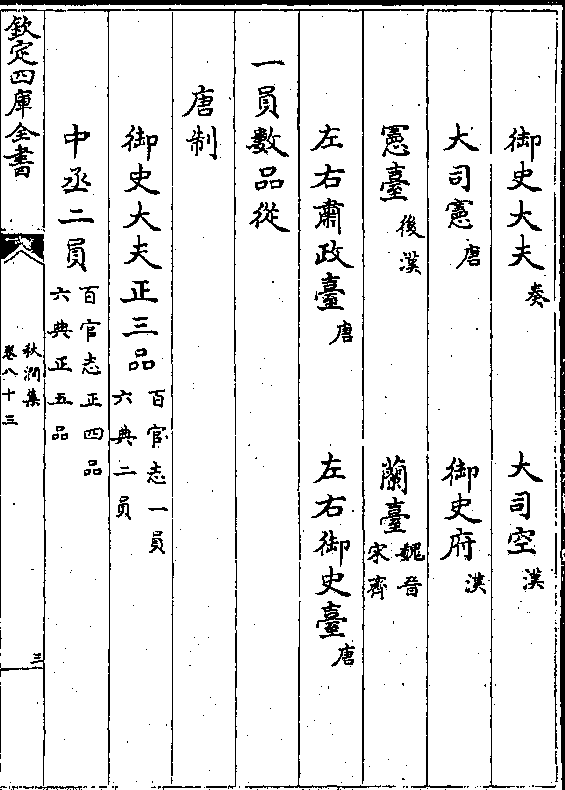 御史大夫奏　大司空漢
大司憲唐　御史府漢
憲臺後漢　蘭臺魏晉宋齊
左右肅政臺唐　左右御史臺唐
一員數品從
唐制
御史大夫正三品百官志一員六典二員
中丞二員百官志正四品六典正五品
欽定四庫全書　秋澗集卷八十三　三